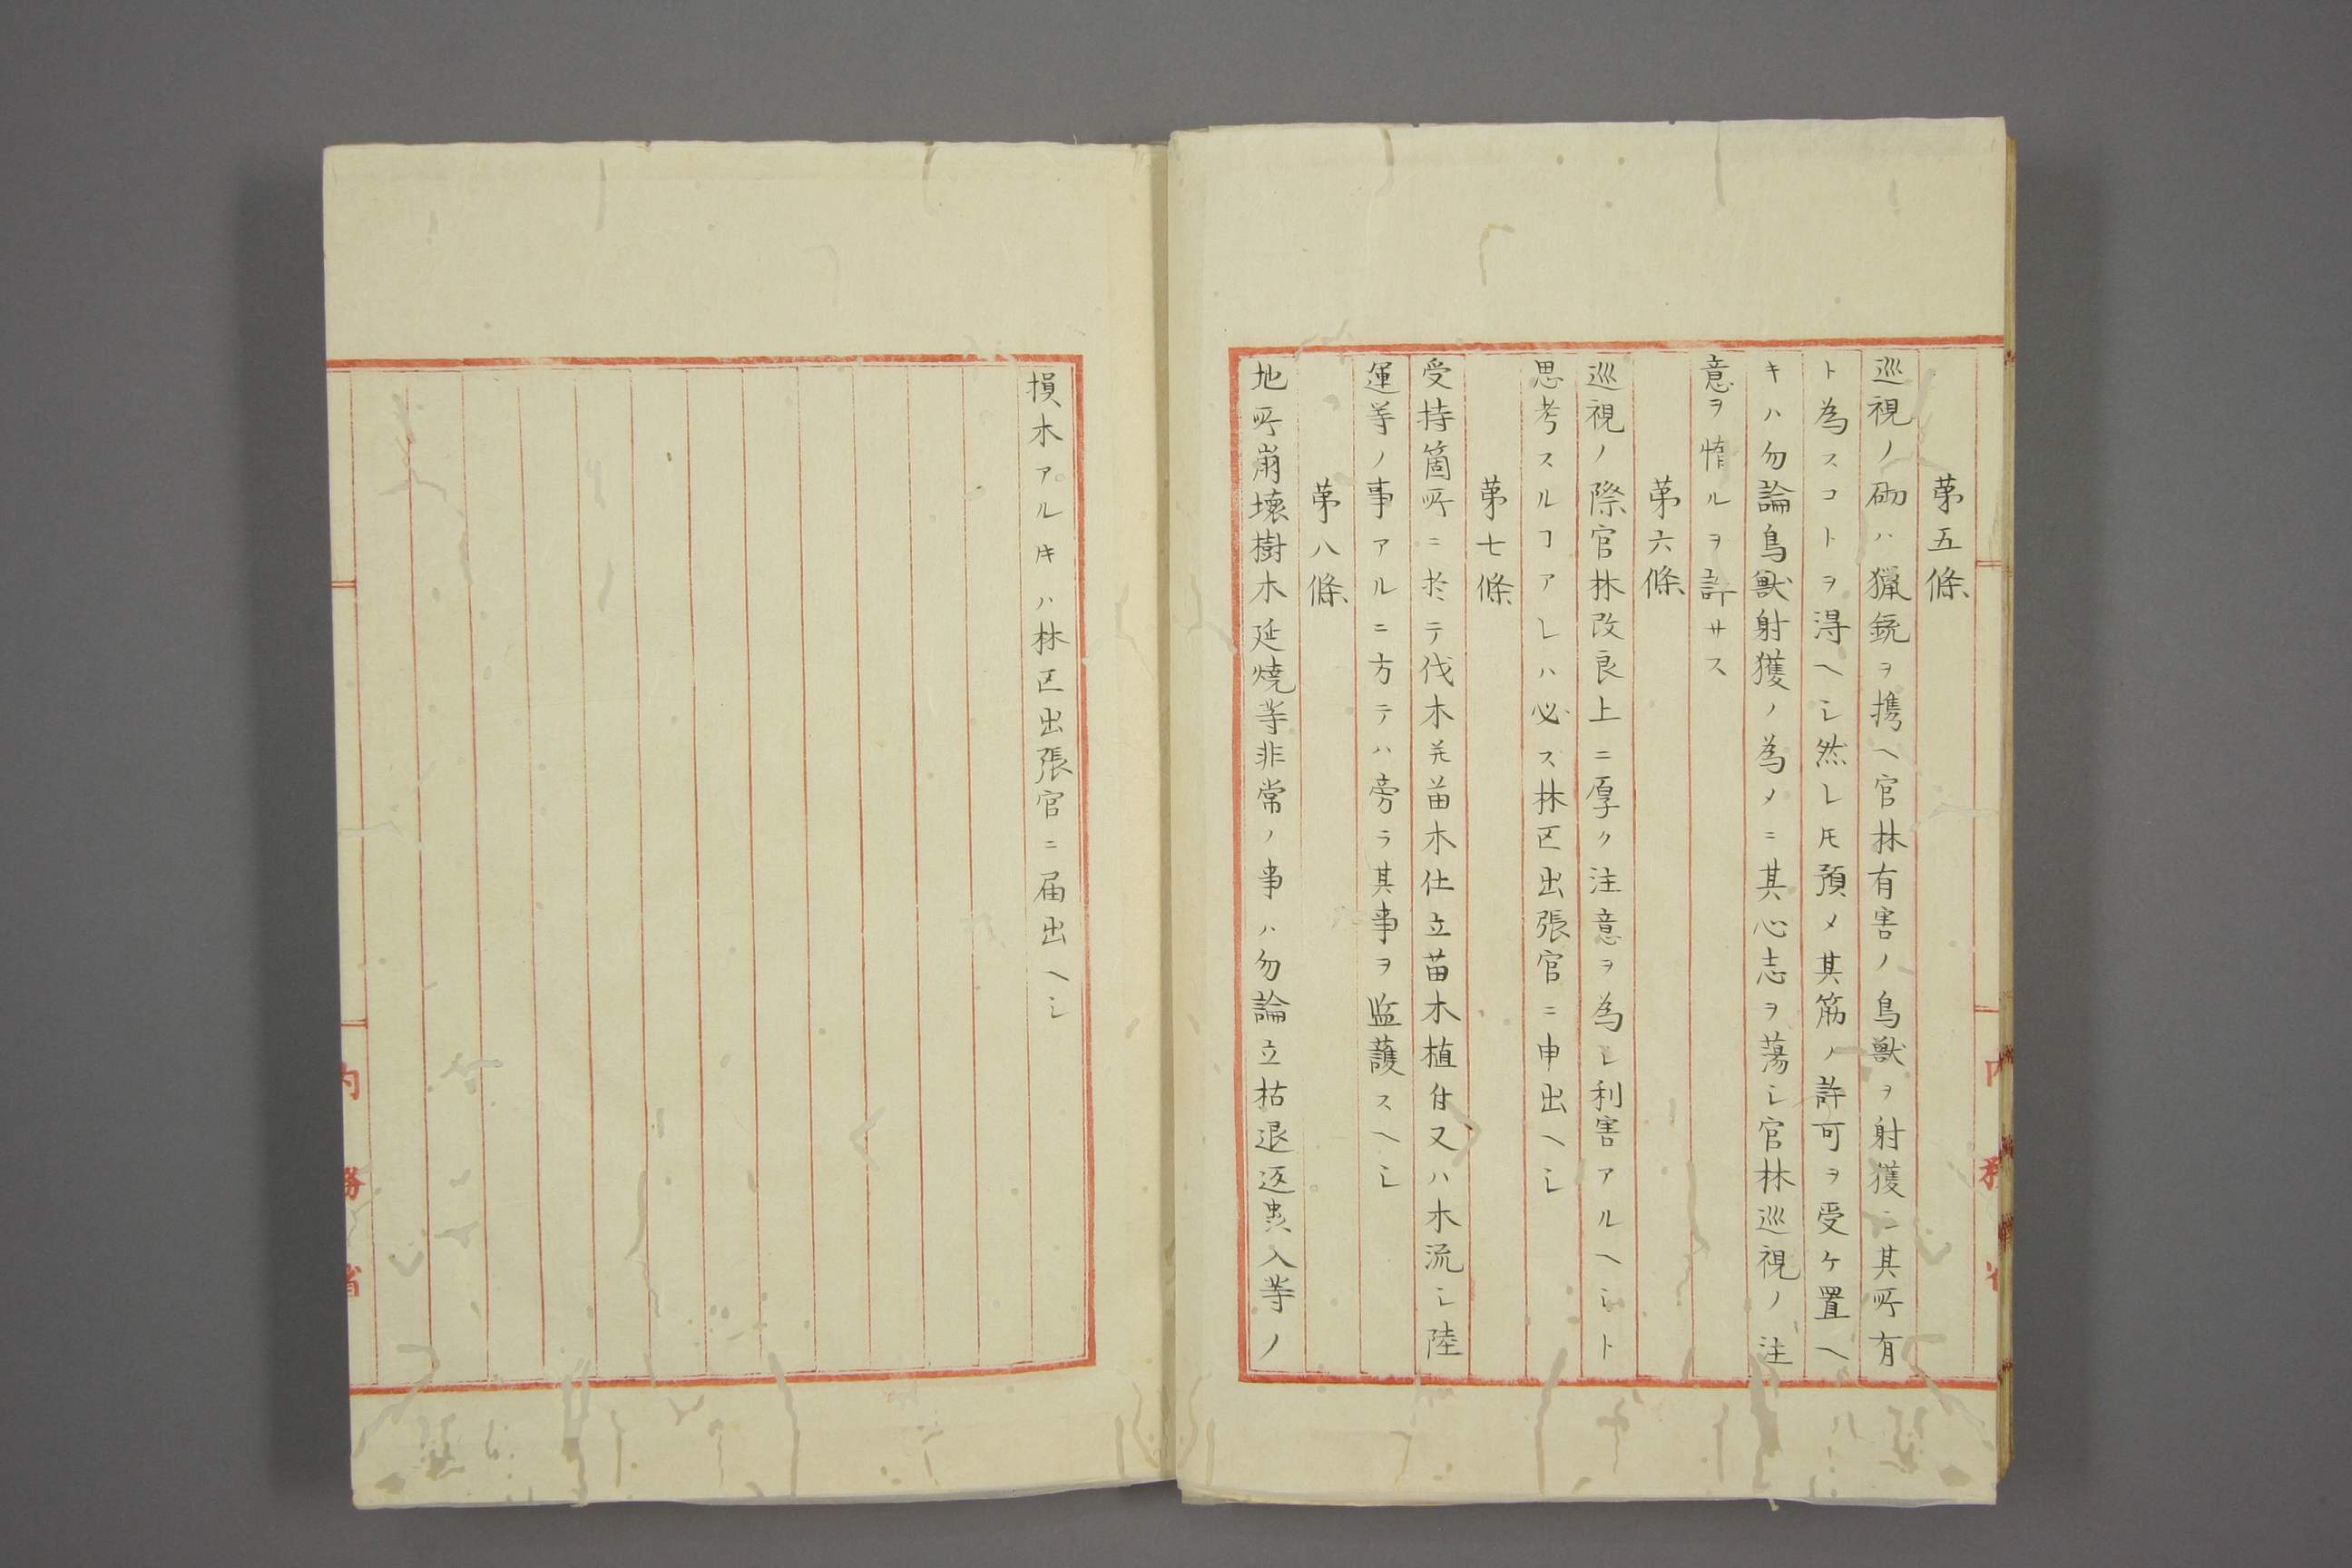 第五條
巡視ノ砌ハ猟銃ヲ携ヘ官林有害ノ鳥獣ヲ射獲シ其所有
ト為スコトヲ得ヘシ然レ𪜈預メ其筋ノ許可ヲ受ケ置ヘ
キハ勿論鳥獣射獲ノ為メニ其心志ヲ蕩シ官林巡視ノ注
意ヲ惰ルヲ許サス
第六條
巡視ノ際官林改良上ニ厚ク注意ヲ為シ利害アルヘシト
思考スルヿアレハ必ス林区出張官ニ申出ヘシ
第七條
受持箇所ニ於テ伐木并苗木仕立苗木植付又ハ木流シ陸
運等ノ事アルニ方テハ旁ラ其事ヲ監護スヘシ
第八條
地所崩壊樹木延焼等非常ノ事ハ勿論立枯退返異入等ノ
損木アルキハ林区出張官ニ届出ヘシ
内務省